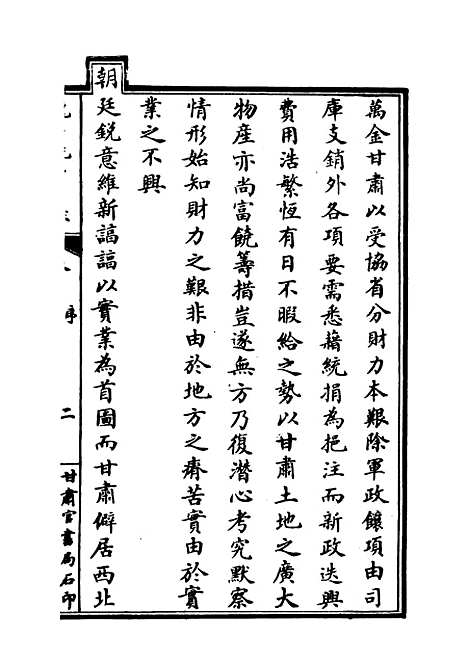 萬金甘肅以受協省分財力本艱除軍政饟項由司
庫支銷外各項要需悉藉統捐為挹注而新政迭興
費用浩繁恆有日不暇給之勢以甘肅土地之廣大
物產亦尚富饒籌措豈遂無方乃復潛心考究默察
情形始知財力之艱非由於地方之瘠苦實由於實
業之不興
朝廷銳意維新謞謞以實業為首圖而甘肅僻居西北
序
二
甘肅官書局石印